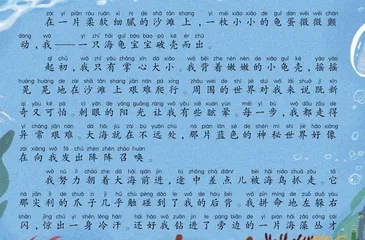 zài yí piàn róu ruǎn xì nì de shā tān shàng yì méi xiǎo xiǎo de guī dàn wēi wēi chàn
在一片柔软细腻的沙滩上，一枚小小的龟蛋微微颤
dòng wǒ yì zhī hǎi guī bǎo bao pò ké ér chū
动，我——一只海龟宝宝破壳而出。
qǐ chū wǒ zhǐ yǒu zhǎng xīn dà xiǎo wǒ bēi zhe nèn nèn de xiǎo guī ké yáo yáo
起初，我只有掌心大小，我背着嫩嫩的小龟壳，摇摇
huàng huàng de zài shā tān shàng jiān nán pá xíng zhōu wéi de shì jiè duì wǒ lái shuō jì xīn
晃晃地在沙滩上艰难爬行。周围的世界对我来说既新
qí yòu kě pà cì yǎn de yáng guāng ràng wǒ yǒu xiē xuàn yùn měi yí bù wǒ dōu zǒu de
奇又可怕，刺眼的阳光让我有些眩晕。每一步，我都走得
yì cháng jiān nán dà hǎi jiù zài bù yuǎn chù nà piàn lán sè de shén mì shì jiè hǎo xiàng
异常艰难。大海就在不远处，那片蓝色的神秘世界好像
zài xiàng wǒ fā chū zhèn zhèn zhào huàn
在向我发出阵阵召唤。
wǒ nǔ lì cháo zhe dà hǎi qián jìn tú zhōng chà diǎn ér bèi hǎi niǎo zhuā zǒu tā
我努力朝着大海前进，途中差点儿被海鸟抓走。它
nà jiān lì de zhuǎ zi jī hū chù pèng dào le wǒ de hòu bèi wǒ pīn mìng de zuǒ duǒ yòu
那尖利的爪子几乎触碰到了我的后背。我拼命地左躲右
shǎn jīng chū yì shēn lěng hàn hái hǎo wǒ zuān jìn le páng biān de yí piàn hǎi zǎo cóng cái
闪，惊出一身冷汗，还好我钻进了旁边的一片海藻丛才